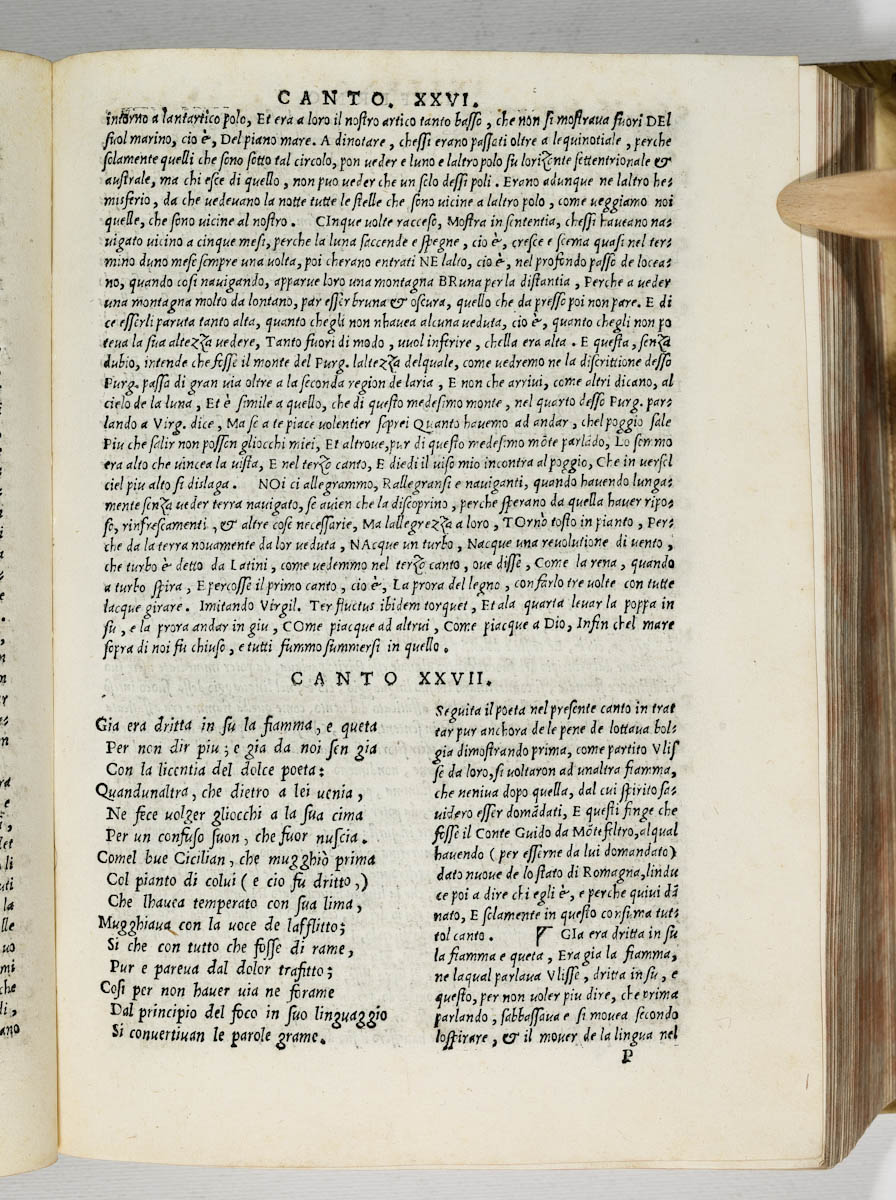 CANTO. XXVI.
intorno a lantartico polo, Et era a loro il nostro artico tanto basso, che non si mostraua fuori DEl
suol marino, cio è, Del piano mare. A dinotare, chessi erano passati oltre a lequinotiale, perche
solamente quelli che sono sotto tal circolo, pon ueder e luno e laltro polo su lorizonte settentrionale &
australe, ma chi esce di quello, non puo ueder che un solo dessi poli. Erano adunque ne laltro he-
misferio, da che uedeuano la notte tutte le stelle che sono uicine a laltro polo, come ueggiamo noi
quelle, che sono uicine al nostro. CInque uolte racceso, Mostra in sententia, chessi haueano na-
uigato uicino a cinque mesi, perche la luna saccende e spegne, cio è, cresce e scema quasi nel ter-
mino duno mese sempre una uolta, poi cherano entrati NE lalto, cio è, nel profondo passo de locea-
no, quando cosi nauigando, apparue loro una montagna BRuna per la distantia, Perche a ueder
una montagna molto da lontano, par esser bruna & oscura, quello che da presso poi non pare. E di
ce esserli paruta tanto alta, quanto chegli non nhauea alcuna ueduta, cio è, quanto chegli non po
teua la sua altezza uedere, Tanto fuori di modo, uuol inferire, chella era alta. E questa, senza
dubio, intende che fosse il monte del Purg. laltezza delquale, come uedremo ne la discrittione desso
Purg. passa di gran uia oltre a la seconda region de laria, E non che arriui, come altri dicano, al
cielo de la luna, Et è simile a quello, che di questo medesimo monte, nel quarto desso Purg. par-
lando a Virg. dice, Ma se a te piace uolentier saprei Quanto hauemo ad andar, chel poggio sale
Piu che salir non posson gliocchi miei, Et altroue, pur di questo medesimo mōte parlādo, Lo sommo
era alto che uincea la uista, E nel terzo canto, E diedi il uiso mio incontra al poggio, Che in uersol
ciel piu alto si dislaga. NOi ci allegrammo, Rallegransi e nauiganti, quando hauendo lunga-
mente senza ueder terra nauigato, se auien che la discoprino, perche sperano da quella hauer ripo-
so, rinfrescamenti, & altre cose necessarie, Ma lallegrezza a loro, TOrnò tosto in pianto, Per-
che da la terra nouamente da lor ueduta, NAcque un turbo, Nacque una reuolutione di uento,
che turbo è detto da Latini, come uedemmo nel terzo canto, oue disse, Come la rena, quando
a turbo spira, E percosse il primo canto, cio è, La prora del legno, con farlo tre uolte con tutte
lacque girare. Imitando Virgil. Ter fluctus ibidem torquet, Et ala quarta leuar la poppa in
su, e la prora andar in giu, COme piacque ad altrui, Come piacque a Dio, Infin chel mare
sopra di noi fu chiuso, e tutti fummo summersi in quello.
CANTO XXVII.
Gia era dritta in su la fiamma, e queta
Per non dir piu; e gia da noi sen gia
Con la licentia del dolce poeta:
Quandunaltra, che dietro a lei uenia,
Ne fece uolger gliocchi a la sua cima
Per un confuso suon, che fuor nuscia.
Comel bue Cicilian, che mugghiò prima
Col pianto di colui (e cio fu dritto,)
Che lhauea temperato con sua lima,
Mugghiaua con la uoce de lafflitto;
Si che con tutto che fosse di rame,
Pur e pareua dal dolor trafitto;
Cosi per non hauer uia ne forame
Dal principio del foco in suo linguaggio
Si conuertiuan le parole grame.
Seguita il poeta nel presente canto in trat
tar pur anchora de le pene de lottaua bol-
gia dimostrando prima, come partito Vlis
se da loro, si uoltaron ad unaltra fiamma,
che neniua dopo quella, dal cui spirito fa-
uidero esser domādati, E questi finge che
fosse il Conte Guido da Mōtefeltro, alqual
hauendo (per esserne da lui domandato)
dato nuoue de lo stato di Romagna, lindu
ce poi a dire chi egli è, e perche quiui dā
nato, E solamente in questo consima tut-
tol canto. GIa era dritta in su
la fiamma e queta, Era gia la fiamma,
ne laqual parlaua Vlisse, dritta in su, e
questo, per non uoler piu dire, che prima
parlando, sabbassaua e si mouea secondo
lospirare, & il mouer de la lingua nel
P